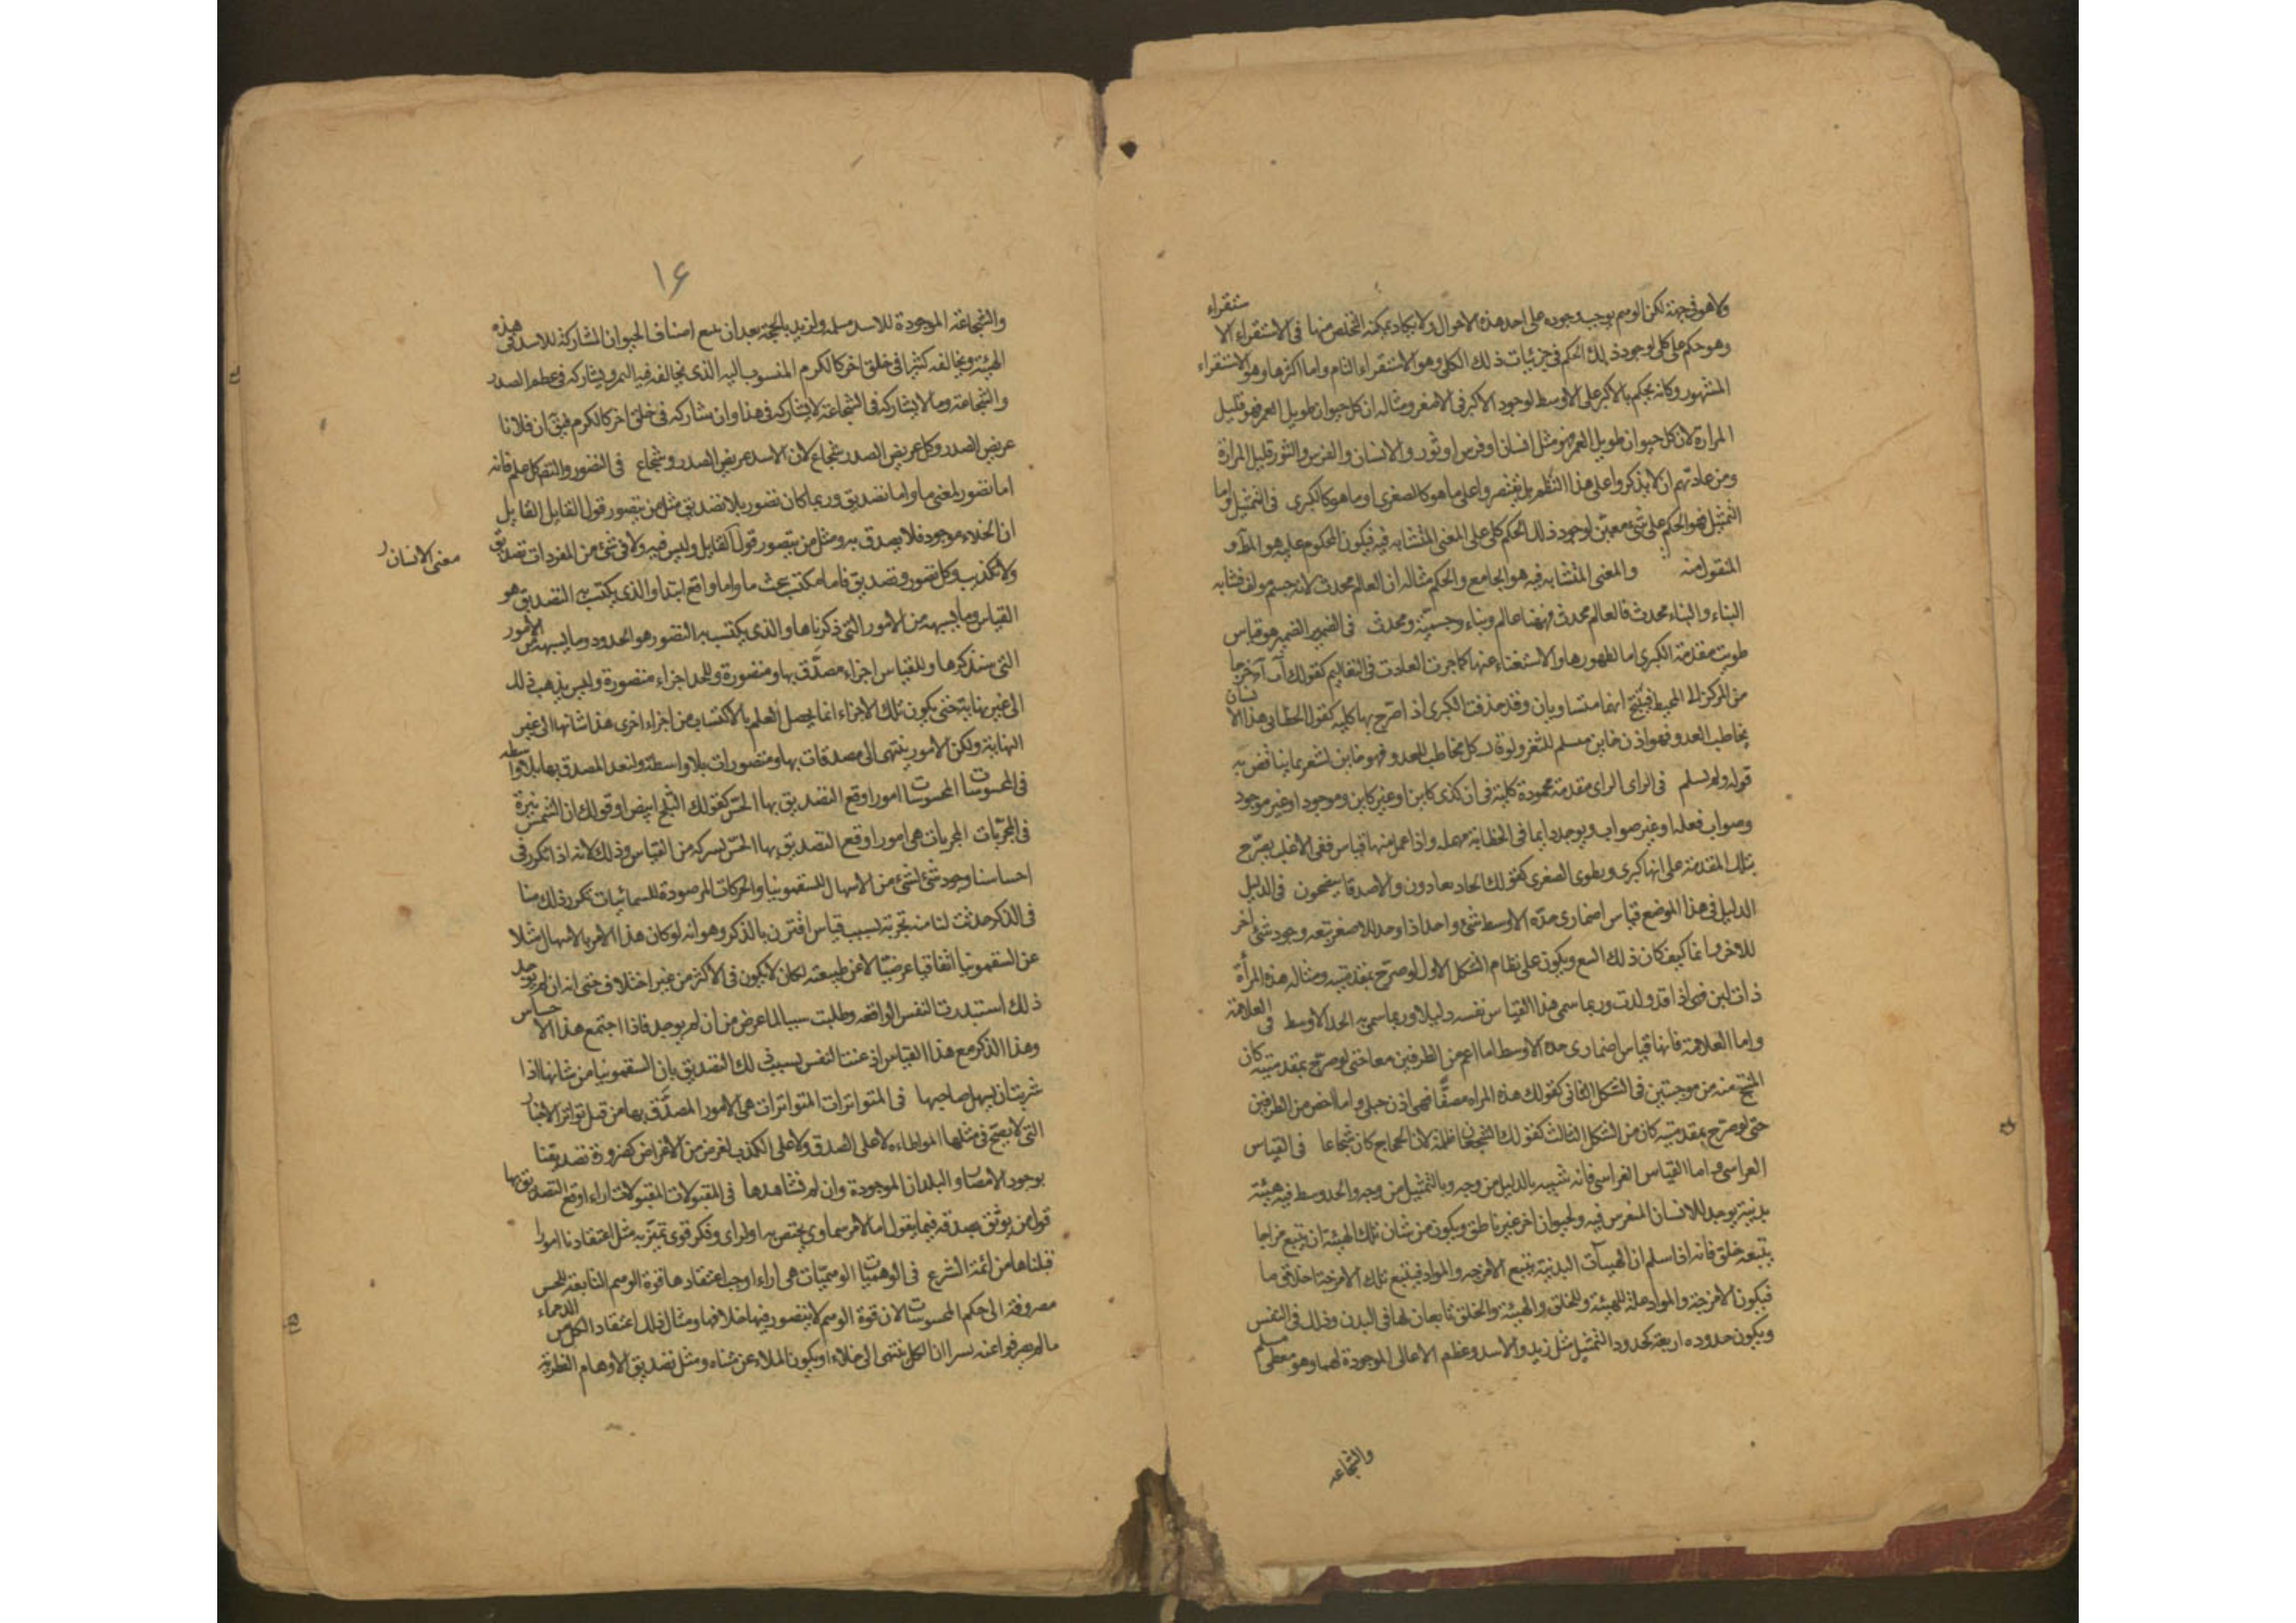 ولا هو فى جهة لكن الوهم يوجب وجوده على احد هذه الاحوال ولا يكاد يمكنه التخلص منها فى الاستقراء الاستقراء
وهو حكم على كلى لوجود ذلك الحكم فى جزئيات ذلك الكلى وهو الاستقراء التام واما اكثرها وهو الاستقراء
المشهور وكانه يحكم بالاكبر على الاوسط لوجود الاكبر فى الاصغر ومثاله ان كل حيوان طويل العمر فهو قليل
المرارة لان كل حيوان طويل العمر فهو مثل انسان او فرس او ثور والانسان والفرس والثور قليل المرارة
ومن عادتهم ان لا يذكروا على هذا النظم بل يقتصروا على ما هو كالصغرى او ما هو كالكبرى فى التمثيل واما
التمثيل فهو الحكم على شئ معين لوجود ذلك الحكم كلى على المعنى المتشابه فيه فيكون المحكوم عليه هو المط و
المنقول منه والمعنى المتشابه فيه هو الجامع والحكم مثاله ان العالم محدث لانه جسم مولف فشابه
البناء والبناء محدث فالعالم محدث فههنا عالم وبناء وجسمية ومحدث فى الضمير الضمير هو قياس
طويت مقدمته الكبرى اما لظهورها والاستغناء عنها كما جرت العادت فى التعاليم كقولك آب آج خرجا
من المركز الى المحيط فينتج انهما متساويان وقد حذفت الكبرى اذ اصرح بها كليه كقول الخطابى هذا الانسان
يخاطب العدو فهو اذن خاين مسلم للثغر ولو قال كل مخاطب للعدو فهو خاين لشعر بما يناقض به
قوله ولم يسلم فى الراى الراى مقدمة محمودة كلية فى ان كذى كاين او غير كاين وموجود او غير موجود
وصواب فعله او غير صواب ويوجد دايما فى الخطابة مهمله واذا عمل منها قياس ففى الاغلب يصرح
بتلك المقدمة على انها كبرى ويطوى الصغرى كقولك الحساد يعادون والاصدقا ينصحون فى الدليل
الدليل فى هذا الموضع قياس اضمارى حده الاوسط شئ واحد اذا وجد للاصغر تبعه وجود شئ اخر
للاخر دايما كيف كان ذلك التبع ويكون على نظام الشكل الاول لو صرح بمقدمتيه ومثاله هذه المرأة
ذات لبن فهى اذا قد ولدت وربما سمى هذا القياس نفسه دليلا وربما سمى به الحد الاوسط فى العلامة
واما العلامة فانها قياس اضمارى حده الاوسط اما اعم من الطرفين معا حتى لو صرح بمقدمتيه كان
المنتج منه من موجبتين فى الشكل الثانى كقولك هذه المراه مصفارة فهى اذن حبلى واما اخص من الطرفين
حتى لو صرح بمقدمتيه كان من الشكل الثالث كقولك الشجعان ظلمة لان الحجاج كان شجاعا فى القياس
الفراسى واما القياس الفراسى فانه شبيه بالدليل من وجه وبالتمثيل من وجه والحد وسط فيه هيئة
بدنية يوجد للانسان المتفرس فيه ولحيوان اخر غير ناطق ويكون من شان تلك الهيئة ان يتبع مزاجا
يتبعه خلق فانه اذا سلم ان الهيآت البدنية يتبع الامزجه والمواد فيتبع تلك الامزجة اخلاق ما
فيكون الامزجة والمواد علة للهيئة وللخلق والهيئة والخلق تابعان لها فى البدن وذلك فى النفس
ويكون حدوده اربعة كحدود التمثيل مثل زيد والاسد وعظم الاعالى الموجودة لهما وهو معطى مسلم
والشجاعه
١٦
والشجاعة الموجودة للاسد مسلمه ولزيد بالحجة بعد ان تتبع اصناف الحيوان المشاركة للاسد فى هذه
الهيئة ويخالفه كثيرا فى خلق اخر كالكرم المنسوب اليه الذى يخالفه فيه النمر ويشاركه فى عظم الصدر
والشجاعة وما لا يشاركه فى الشجاعة لا يشاركه فى هذا وان شاركه فى خلق اخر كالكرم فيق ان فلانا
عريض الصدر وكل عريض الصدر شجاع لان الاسد عريض الصدر وشجاع فى التصور والتصديق كل علم فانه
اما تصور لمعنى ما واما تصديق وربما كان تصور بلا تصديق مثل من يتصور قول القايل القايل
ان الخلاء موجود فلا يصدق به ومثل من يتصور قول القايل وليس فيه ولا فى شئ من المفردات تصديق
معنى الانسان
ولا تكذيب وكل تصور وتصديق فاما مكتسب بحث ما واما واقع ابتدا والذى يكتسب به التصديق هو
القياس وما يشبهه من الامور التى ذكرناها والذى يكتسب به التصور هو الحدود وما يشبهه من الامور
التى سنذكرها وللقياس اجزاء مصدق بها ومتصورة وللحد اجزاء متصورة وليس يذهب ذلك
الى غير نهاية حتى يكون تلك الاجزاء انما يحصل العلم بالاكتساب من اجزاء اخرى هذا شانها الى غير
النهاية ولكن الامور ينتهى الى مصدقات بها ومتصورات بلا واسطة ولنعد المصدق بها بلا واسطه
فى المحسوسات المحسوسات امور اوقع التصديق بها الحس كقولك الثلج ابيض او قولك ان الشمس نيرة
فى المجربات المجربات هى امور اوقع التصديق بها الحس بشركة من القياس وذلك لانه اذا تكرر فى
احساسنا وجود شئ لشئ من الاسهال للسقمونيا والحركات المرصودة للسمائيات تكرر ذلك منا
فى الذكر حدثت لنا منه تجربة بسبب قياس اقترن بالذكر وهو انه لو كان هذا الامر بالاسهال مثلا
عن السقمونيا اتفاقيا عرضيا لا عن طبيعته لكان لا يكون فى الاكثر من غير اختلاف حتى انه ان لم يوجد
ذلك استبدرت النفس الواقعه وطلبت سببا لما عرض من ان لم يوجد فاذا اجتمع هذا الاحساس
وهذا الذكر مع هذا القياس اذعنت النفس بسبب ذلك التصديق بان السقمونيا من شانها اذا
شربت ان يسهل صاحبها فى المتواترات المتواترات هى الامور المصدق بها من قبل تواتر الاخبار
التى لا يصح فى مثلها المواطاءه لا على الصدق ولا على الكذب لغرض من الاغراض كضرورة تصديقنا
بوجود الامصار والبلدان الموجودة وان لم نشاهدها فى المقبولات المقبولات اراء اوقع التصديق بها
قول من يوثق بصدقه فيما يقول اما لامر سماوى يختص به او لراى وفكر قوى تميز به مثل اعتقادنا امورا
قبلناها من ائمة الشرع فى الوهميات الوهميات هى اراء اوجب اعتقادها قوة الوهم التابعة للحس
مصروفة الى حكم المحسوسات لان قوة الوهم لا يتصور فيها خلافها ومثال ذلك اعتقاد الكل من الدهماء
ما لم يصرفوا عنه بسرا ان الكل ينتهى الى خلاء او يكون الملاء غير متناه ومثل تصديق الاوهام الفطرية